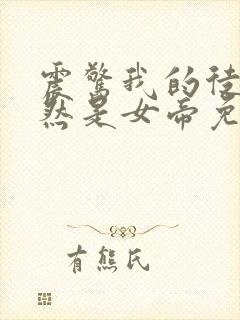 震惊我的徒
然是女帝免
有熊氏